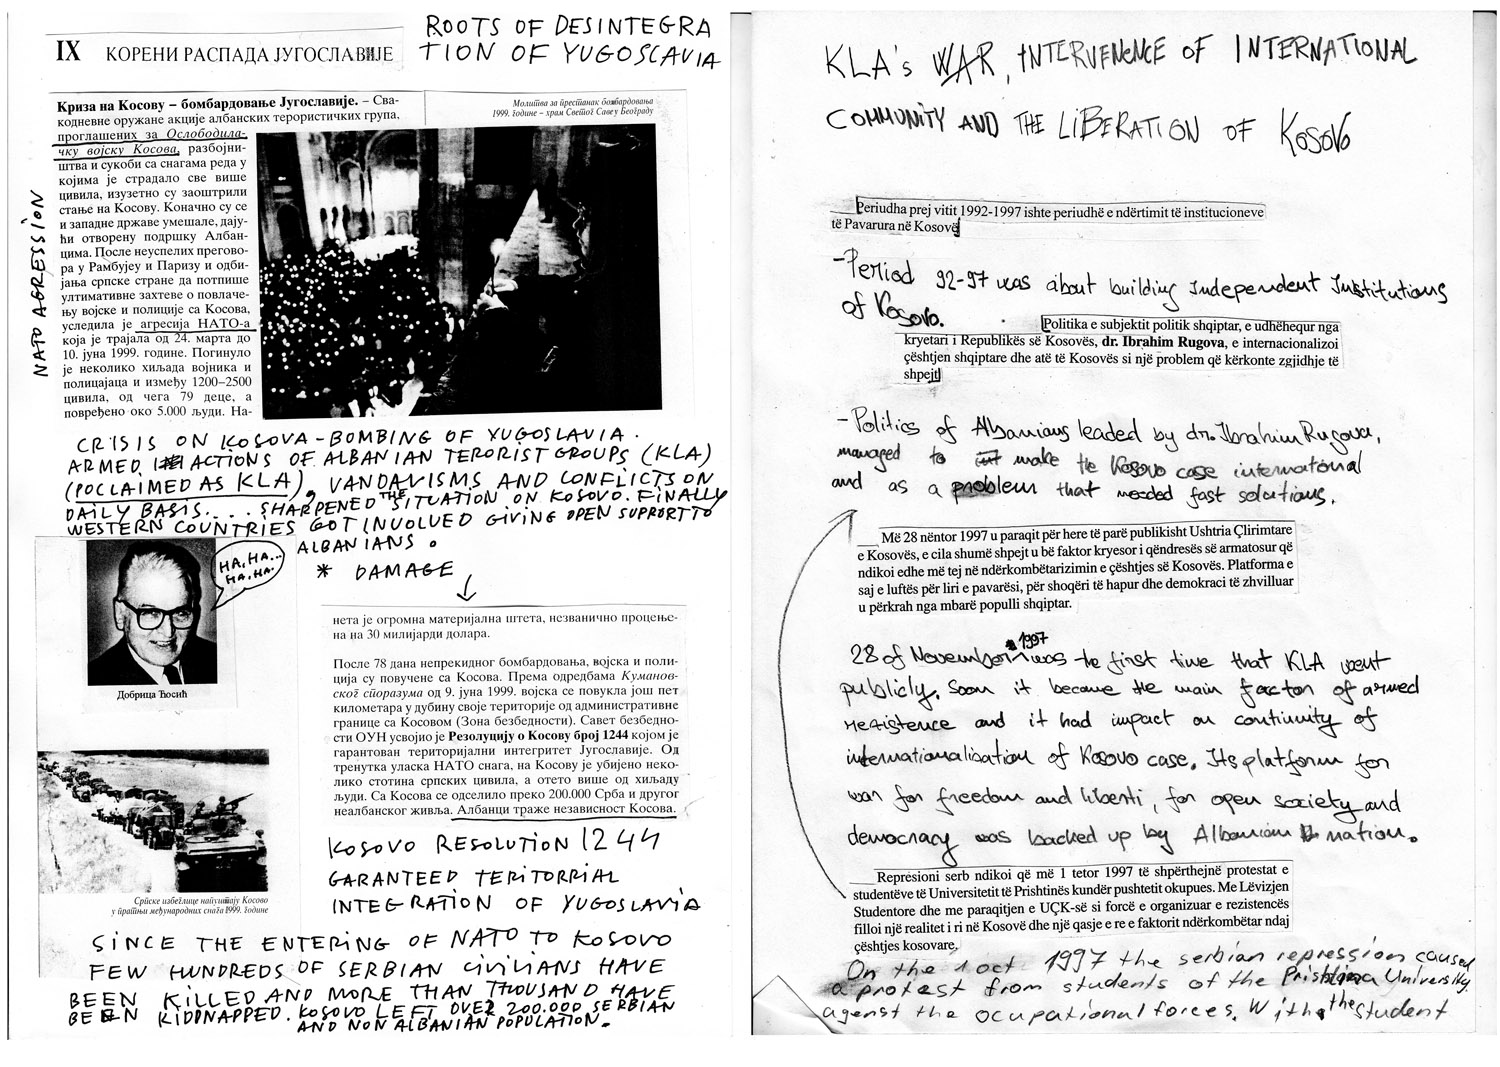 IX КОРЕНИ РАСПАДА ЈУГОСЛАВИЈЕ
ROOTS OF DESINTEGRA
TION OF YUGOSLAVIA
Криза на Косову – бомбардовање Југославије. – Сва-
кодневне оружане акције албанских терористичких група,
проглашених за Ослободила-
чку војску Косова, разбојни-
штва и сукоби са снагама реда у
којима је страдало све више
цивила, изузетно су заоштрили
стање на Косову. Коначно су се
и западне државе умешале, дају-
ћи отворену подршку Албан-
цима. После неуспелих прегово-
ра у Рамбујеу и Паризу и одби-
јања српске стране да потпише
ултимативне захтеве о повлаче-
њу војске и полиције са Косова,
уследила је агресија НАТО-а
која је трајала од 24. марта до
10. јуна 1999. године. Погинуло
је неколико хиљада војника и
полицајаца и између 1200–2500
цивила, од чега 79 деце, а
повређено око 5.000 људи. На-
Молитва за престанак бомбардовања
1999. године – храм Светог Саве у Београду
NATO AGRESSION
CRISIS ON KOSOVA - BOMBING OF YUGOSLAVIA.
ARMED ACTIONS OF ALBANIAN TERORIST GROUPS (KLA)
(POCLAIMED AS KLA), VANDAVISMS AND CONFLICTS ON
DAILY BASIS.... SHARPENED THE SITUATION ON KOSOVO. FINALLY
WESTERN COUNTRIES GOT INVOLUED GIVING OPEN SUPRORT TO
ALBANIANS.
HA, HA...
HA, HA.
* DAMAGE
Добрица Ћосић
нета је огромна материјална штета, незванично процење-
на на 30 милијарди долара.
После 78 дана непрекидног бомбардовања, војска и поли-
ција су повучене са Косова. Према одредбама Кумано-
вског споразума од 9. јуна 1999. војска се повукла још пет
километара у дубину своје територије од административне
границе са Косовом (Зона безбедности). Савет безбедно-
сти ОУН усвојио је Резолуцију о Косову број 1244 којом је
гарантован територијални интегритет Југославије. Од
тренутка уласка НАТО снага, на Косову је убијено неко-
лико стотина српских цивила, а отето више од хиљаду
људи. Са Косова се одселило преко 200.000 Срба и другог
неалбанског живља. Албанци траже независност Косова.
Српске избеглице напуштају Косово
у пратњи међународних снага 1999. године
KOSOVO RESOLUTION 1244
GARANTEED TERITORRIAL
INTEGRATION OF YUGOSLAVIA
SINCE THE ENTERING OF NATO TO KOSOVO
FEW HUNDREDS OF SERBIAN CIVILIANS HAVE
BEEN KILLED AND MORE THAN THOUSAND HAVE
BEEN KIDNAPPED. KOSOVO LEFT OVER 200.000 SERBIAN
AND NON ALBANIAN POPULATION.
KLA's WAR, INTERVENENCE OF INTERNATIONAL
COMMUNITY AND THE LIBERATION OF KOSOVO
Periudha prej vitit 1992-1997 ishte periudhë e ndërtimit të institucioneve
të Pavarura në Kosovë
-Period 92-97 was about building Independent Institutions
of Kosovo.
Politika e subjektit politik shqiptar, e udhëhequr nga
kryetari i Republikës së Kosovës, dr. Ibrahim Rugova, e internacionalizoi
çështjen shqiptare dhe atë të Kosovës si një problem që kërkonte zgjidhje të
shpejt
-Politics of Albanians leaded by dr. Ibrahim Rugova,
managed to make the Kosovo case international
and as a problem that needed fast solutions.
Më 28 nëntor 1997 u paraqit për here të parë publikisht Ushtria Çlirimtare
e Kosovës, e cila shumë shpejt u bë faktor kryesor i qëndresës së armatosur që
ndikoi edhe më tej në ndërkombëtarizimin e çështjes së Kosovës. Platforma e
saj e luftës për liri e pavarësi, për shoqëri të hapur dhe demokraci të zhvilluar
u përkrah nga mbarë populli shqiptar.
28 of November 1997 was the first time that KLA went
publicly. Soon it became the main factor of armed
rezistence and it had impact on continuity of
internationalisation of Kosovo case. Its platform for
war for freedom and liberti, for open society and
democracy was backed up by Albanian nation.
Represioni serb ndikoi që më 1 tetor 1997 të shpërthejnë protestat e
studentëve të Universitetit të Prishtinës kundër pushtetit okupues. Me Lëvizjen
Studentore dhe me paraqitjen e UÇK-së si forcë e organizuar e rezistencës
filloi një realitet i ri në Kosovë dhe një qasje e re e faktorit ndërkombëtar ndaj
çështjes kosovare.
On the 1 oct 1997 the serbian repression caused
a protest from students of the Prishtina University
against the ocupational forces. With the student